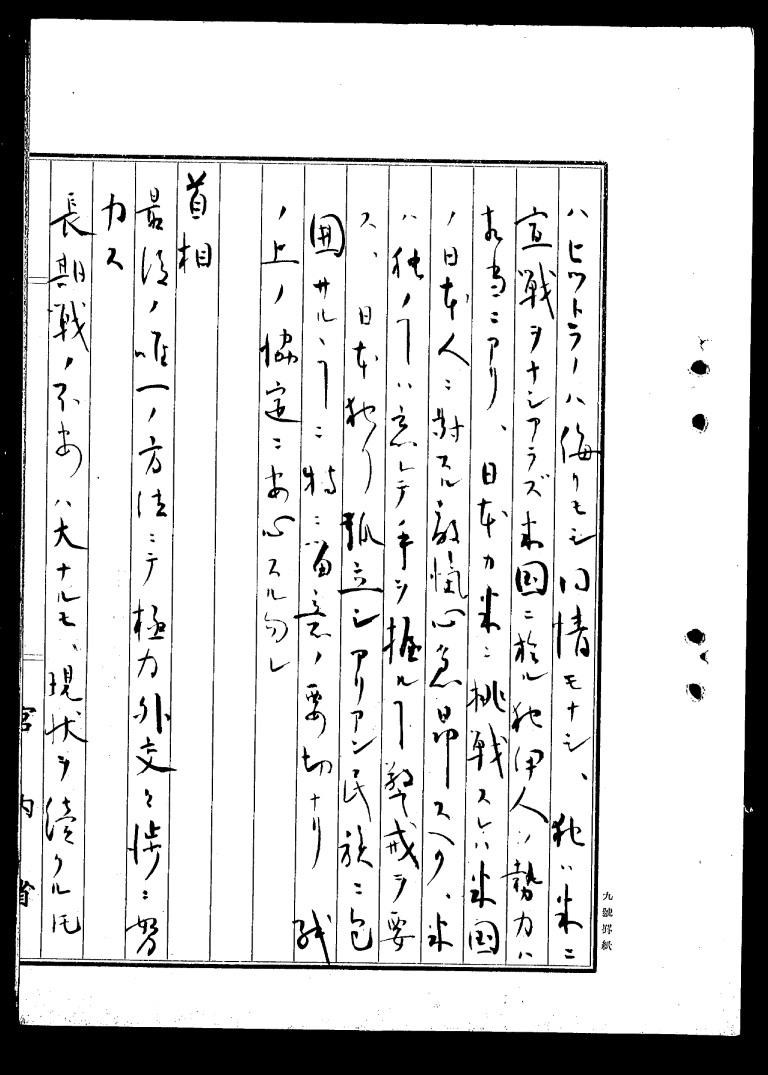 ハヒツトラーハ侮リモシ同情モナシ、独ハ米ニ
宣戦ヲナシアラズ米国ニ於ル独伊人ノ勢力ハ
相当ニアリ、日本カ米ニ挑戦スレハ米国
ノ日本人ニ対スル敵愾心急昂スヘク、米
ハ独ノヿハ意レテ手ヲ握ルヿ警戒ヲ要
ス、日本独リ孤立シアリアン民族ニ包
囲サルヽヿニ特ニ留意ノ要切ナリ
ノ上ノ協定ニ安心スル勿レ
首相
最后ノ唯一ノ方法ニテ極力外交々渉ニ努
力ス
長期戦ノ不安ハ大ナルモ、現状ヲ続クル𪜈
九號罫紙
宮内省